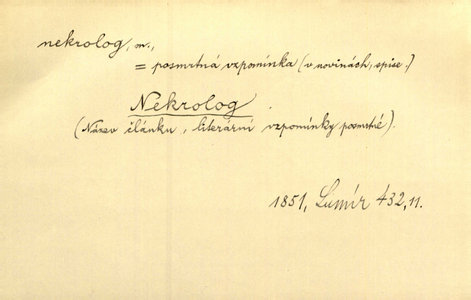 nekrolog, m.,
= posmrtná vzpomínka (v novinách, spise.)
Nekrolog.
(Název článku, literární vzpomínky posmrtné).
1851, Lumír 432,11.